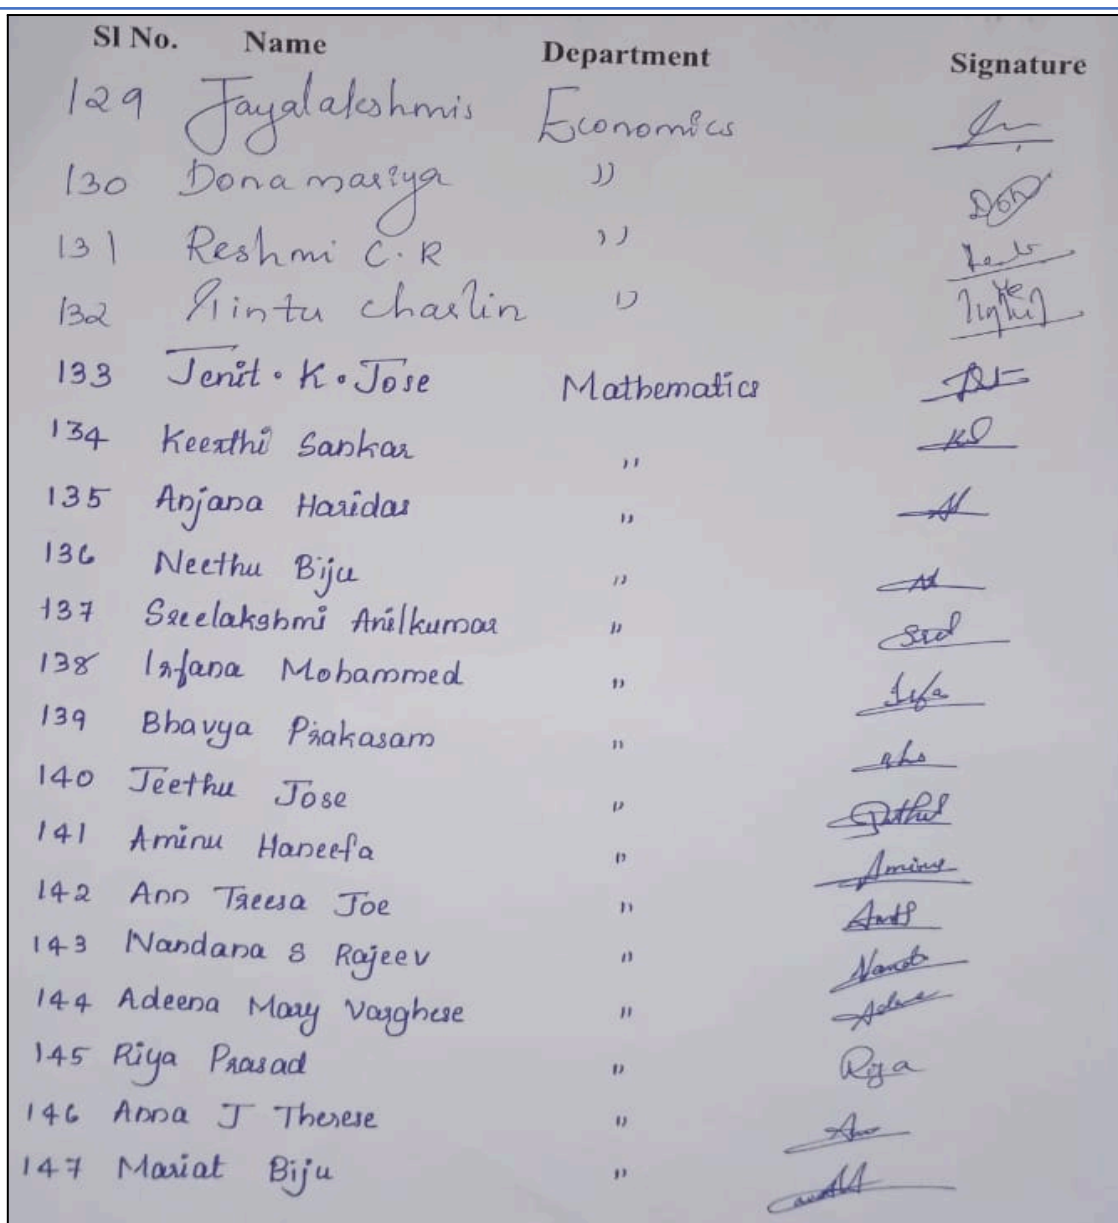 Sl No. Name Department Signature
129 Jayalakshmis Economics
130 Dona mariya " Don
131 Reshmi C.R "
132 Tintu charlin "
133 Jenit. K. Jose Mathematics
134 Keerthi Sankar " KS
135 Anjana Haridas "
136 Neethu Biju "
137 Sreelakshmi Anilkumar " Sree
138 Irfana Mohammed " Irfa
139 Bhavya Prakasam "
140 Jeethu Jose "
141 Aminu Haneefa " Aminu
142 Ann Treesa Joe "
143 Nandana S Rajeev "
144 Adeena Mary Varghese "
145 Riya Prasad " Riya
146 Anna J Therese "
147 Mariat Biju "